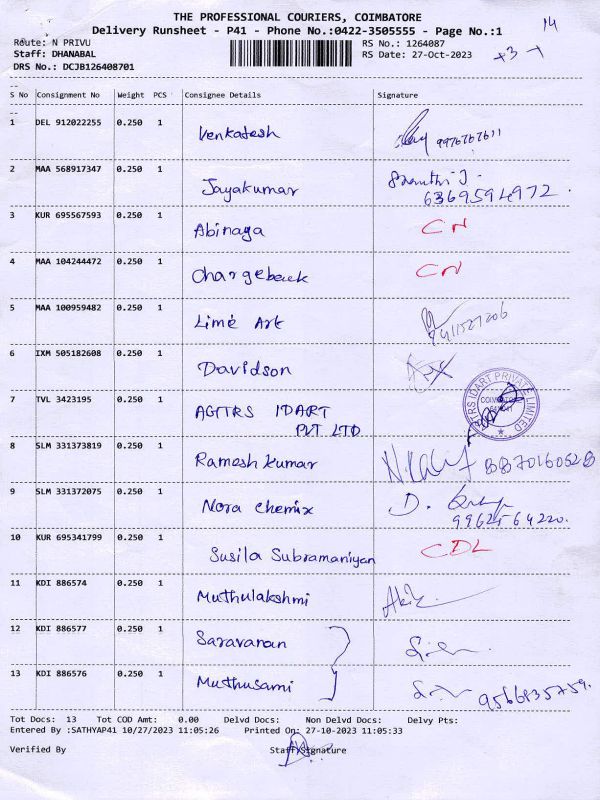 THE PROFESSIONAL COURIERS, COIMBATORE
14
Delivery Runsheet - P41 - Phone No.:0422-3505555 - Page No.:1
Route: N PRIVU
RS No.: 1264087
Staff: DHANABAL
RS Date: 27-Oct-2023
DRS No.: DCJB126408701
S No Consignment No Weight PCS Consignee Details Signature
1 DEL 912022255 0.250 1 Venkatesh 9976767611
2 MAA 568917347 0.250 1 Jayakumar
6369594972
3 KUR 695567593 0.250 1 Abinaga CN
4 MAA 104244472 0.250 1 Chargebeek CN
5 MAA 100959482 0.250 1 Lime Art
6 IXM 505182608 0.250 1 Davidson
7 TVL 3423195 0.250 1 AGITRS IDART
PVT LTD
8 SLM 331373819 0.250 1 Ramesh kumar
9 SLM 331372075 0.250 1 Nora chemix D.
9962564220.
10 KUR 695341799 0.250 1 Susila Subramaniyan CDL
11 KDI 886574 0.250 1 Muthulakshmi
12 KDI 886577 0.250 1 Saravanan
13 KDI 886576 0.250 1 Muthusami 9566835759.
Tot Docs: 13 Tot COD Amt: 0.00 Delvd Docs: Non Delvd Docs: Delvy Pts:
Entered By :SATHYAP41 10/27/2023 11:05:26 Printed On: 27-10-2023 11:05:33
Verified By Staff Signature